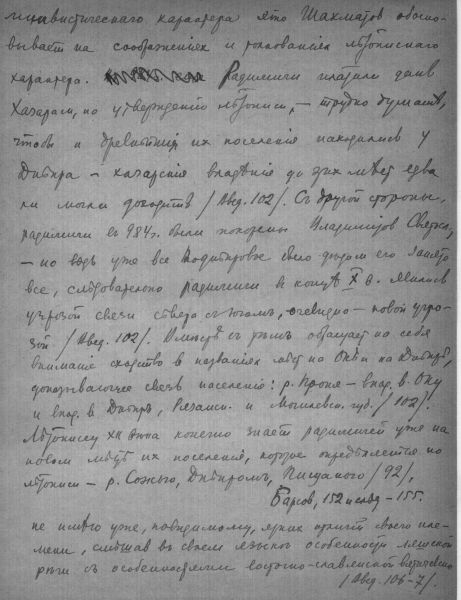 лингвистическаго характера это Шахматов обосно-
вывает на соображениях и толкованиях лѣтописнаго
характера. Радимичи платили дань
Хазарам, по утверждению лѣтописи, — трудно думать,
чтобы и древнѣйшія их поселенія находились у
Днѣпра — хазарскія владѣнія до этих мѣст едва
ли могли доходить /Введ. 102/. С другой стороны,
радимичи в 984 г. были покорены Владимиром Святосл,
— но вѣдь уже все Поднѣпровье было дѣдом его занято
все, слѣдовательно радимичи в концѣ X в. явились
угрозой связи сѣвера с югом, очевидно — новой угро-
зой. /Введ. 102/. Вмѣстѣ с тѣм обращает на себя
внимание сходство в названіях мѣст на Окѣ и на Днѣпрѣ,
доказывающее связь поселеніе: р. Проня — впад. в. Оку
и впад. в Днѣпръ, Рязанск. и Могилевск. губ. /102/.
Лѣтописец XII вѣка конечно знает радимичей уже на
новом мѣстѣ их поселенія, которое опредѣляется по
лѣтописи — р. Сожью, Днѣпромъ, Пищаною /92/,
Барсов, 152 и слѣд — 155.
не имѣю уже, повидимому, ярких примѣт своего пле-
мени, смѣшав в своем языкѣ особенности ляшской
рѣчи съ особенностями восточно-славянской
/Введ. 106-7/.